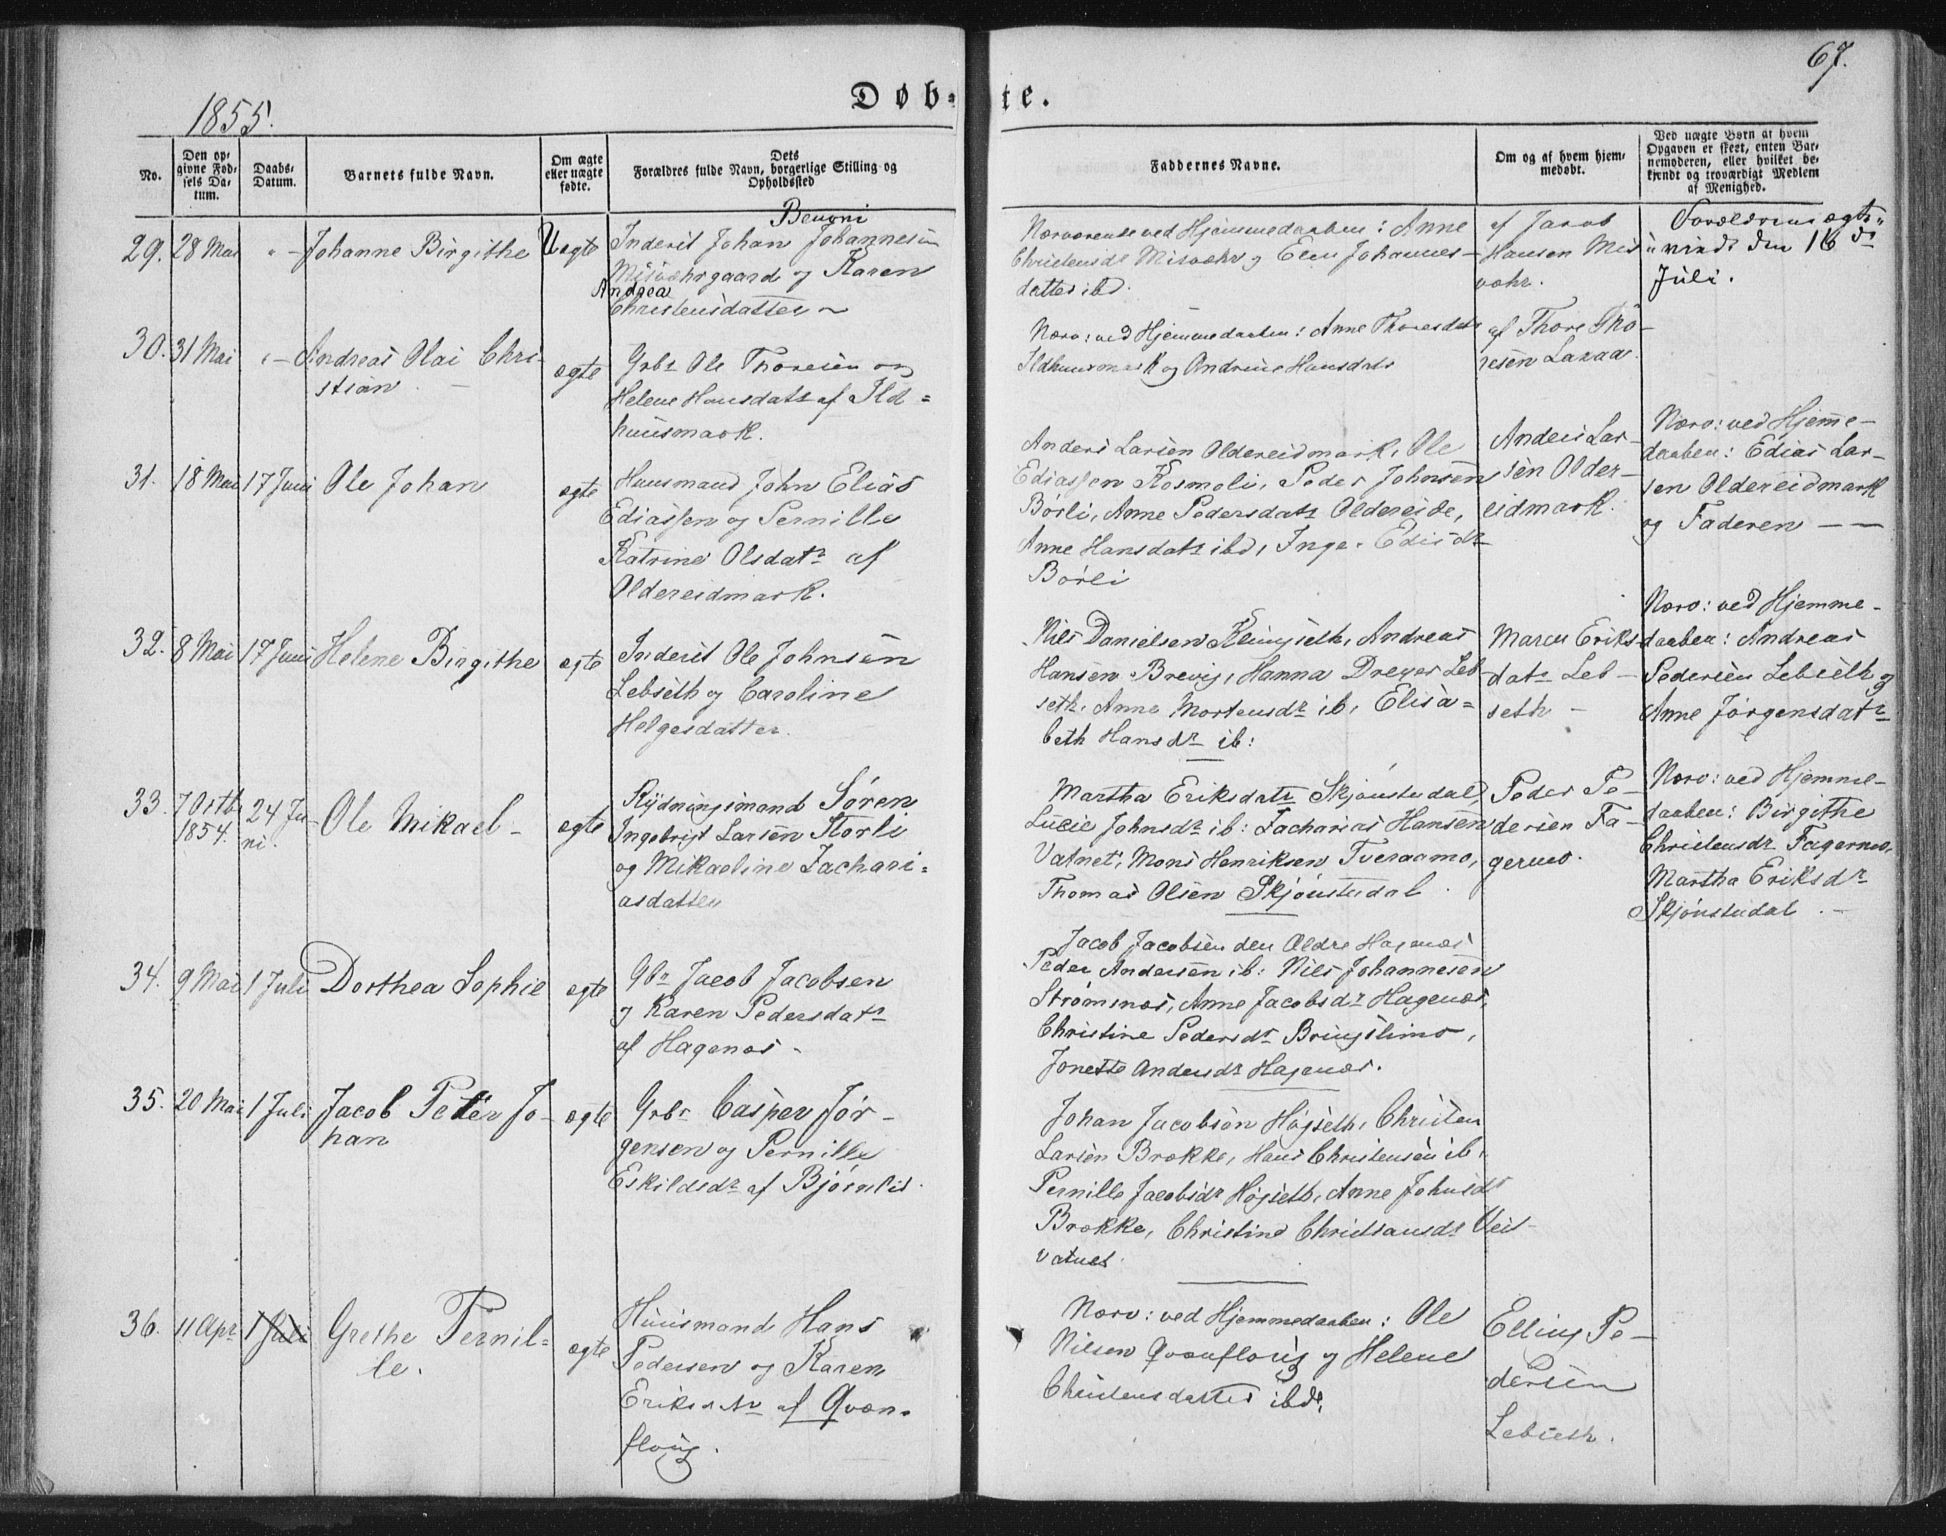 67.
1855.
Døb-te.
No.
Den op-
givne Fød-
sels Da-
tum.
Daabs-
Datum.
Barnets fulde Navn.
Om ægte
eller uægte
fødte.
Dets
Forældres fulde Navn, borgerlige Stilling og
Opholdssted
Faddernes Navne.
Om og af hvem hjem-
medøbt.
Ved uægte Børn at hvem
Opgaven er skeet, enten Bar-
nemoderen, eller hvilket be-
kjendt og troværdigt Medlem
af Menighed.
29. 28 Mai "- Johanne Birgithe Uegte
Benoni
Inderst Johan Johannesen
Misværsgaard og Karen
Andrea
Christensdatter ~
Nærværende ved Hjemmedaaben: Anne
Christensdr Misvær og Elen Johannes-
datter ibd.
af Jacob
Hansen Mis
vær.
Forældrene ægte-
viede den 16 de
Juli.
30. 31 Mai "- Andreas Olai Chri-
stian. - ægte
Grbr Ole Thoresen og
Helene Hansdatr af Ild=
huusmark.
Nærv: ved Hjemmedaaben: Anne Thoresdatr
Ildhuusmark og Andrine Hansdatr
af Thore Tho-
resen
31. 18 Mai 17 Juni Ole Johan ægte
Huusmand John Elias
Ediassen og Pernille
Katrine Olsdatr af
Oldereidmark.
Anders Larsen Oldereidmark, Ole
Ediassen Kosmoli, Peder Johnsen
Børli, Anne Pedersdatr Oldereide,
Anne Hansdatr ibd, Inge Edisdr
Børli
Anders Lar-
sen Older-
eidmark.
Nærv: ved Hjemme-
daaben: Edias Lar-
sen Oldereidmark
og Faderen - -
32. 8 Mai 17 Juni Helene Birgithe ægte
Inderst Ole Johnsen
Lebseth og Caroline
Helgesdatter.
Nils Danielsen Klungseth, Andreas
Hansen Brevig, Hanna Dreyer Leb
seth, Anne Mortensdr ib, Elisa=
beth Hansdr ib:
Maren Eriks
datr Leb-
seth -
Nærv: ved Hjemme-
daaben: Andreas
Pedersen Lebseth og
Anne Jørgensdatr
33. 7 Octbr
1854. 24 Ju-
ni. Ole Mikael - ægte
Rydningsmand Søren
Ingebrigt Larsen Storli
og Mikaeline Zachari-
asdatter
Martha Eriksdatr Skjønstudal,
Lucie Johnsdr ib: Zacharias Hansen
Vatnet, Mons Henriksen Tveraamo,
Thomas Olsen Skjønstudal.
Peder Pe-
dersen Fa-
germo.
Nærv: ved Hjemme-
daaben: Birgithe
Christensdr Fagermo,
Martha Eriksdr
Skjønstudal. -
34. 9 Mai 1 Juli Dorthea Sophie ægte
Gbr Jacob Jacobsen
og Karen Pedersdatr
af Hagenæs -
Jacob Jacobsen den Ældre Hagenæs
Peder Andersen ib: Nils Johannesen
Strømnæs, Anne Jacobsdr Hagenæs,
Christine Pedersdr Bringslimo,
Jonette Andersdr Hagenæs.
35. 20 Mai 1 Juli Jacob Peter Jo-
han ægte
Grbr Casper Jør-
gensen og Pernille
Eskildsdr af Bjørnlid.
Johan Jacobsen Højseth, Christen
Larsen Brække, Hans Christensen ib,
Pernille Jacobsdr Højseth, Anne Johnsdr
Brække, Christine Christiansdr Veis-
vatnet.
36. 11 Apr 1 Juli Grethe Pernil=
le. ægte
Huusmand Hans
Pedersen og Karen
Eriksdtr af Qvæn-
floug.
Nærv: ved Hjemmedaaben: Ole
Nilsen Qvænfloug og Helene
Christensdatter ibd,
Elling Pe-
dersen
Lebseth.